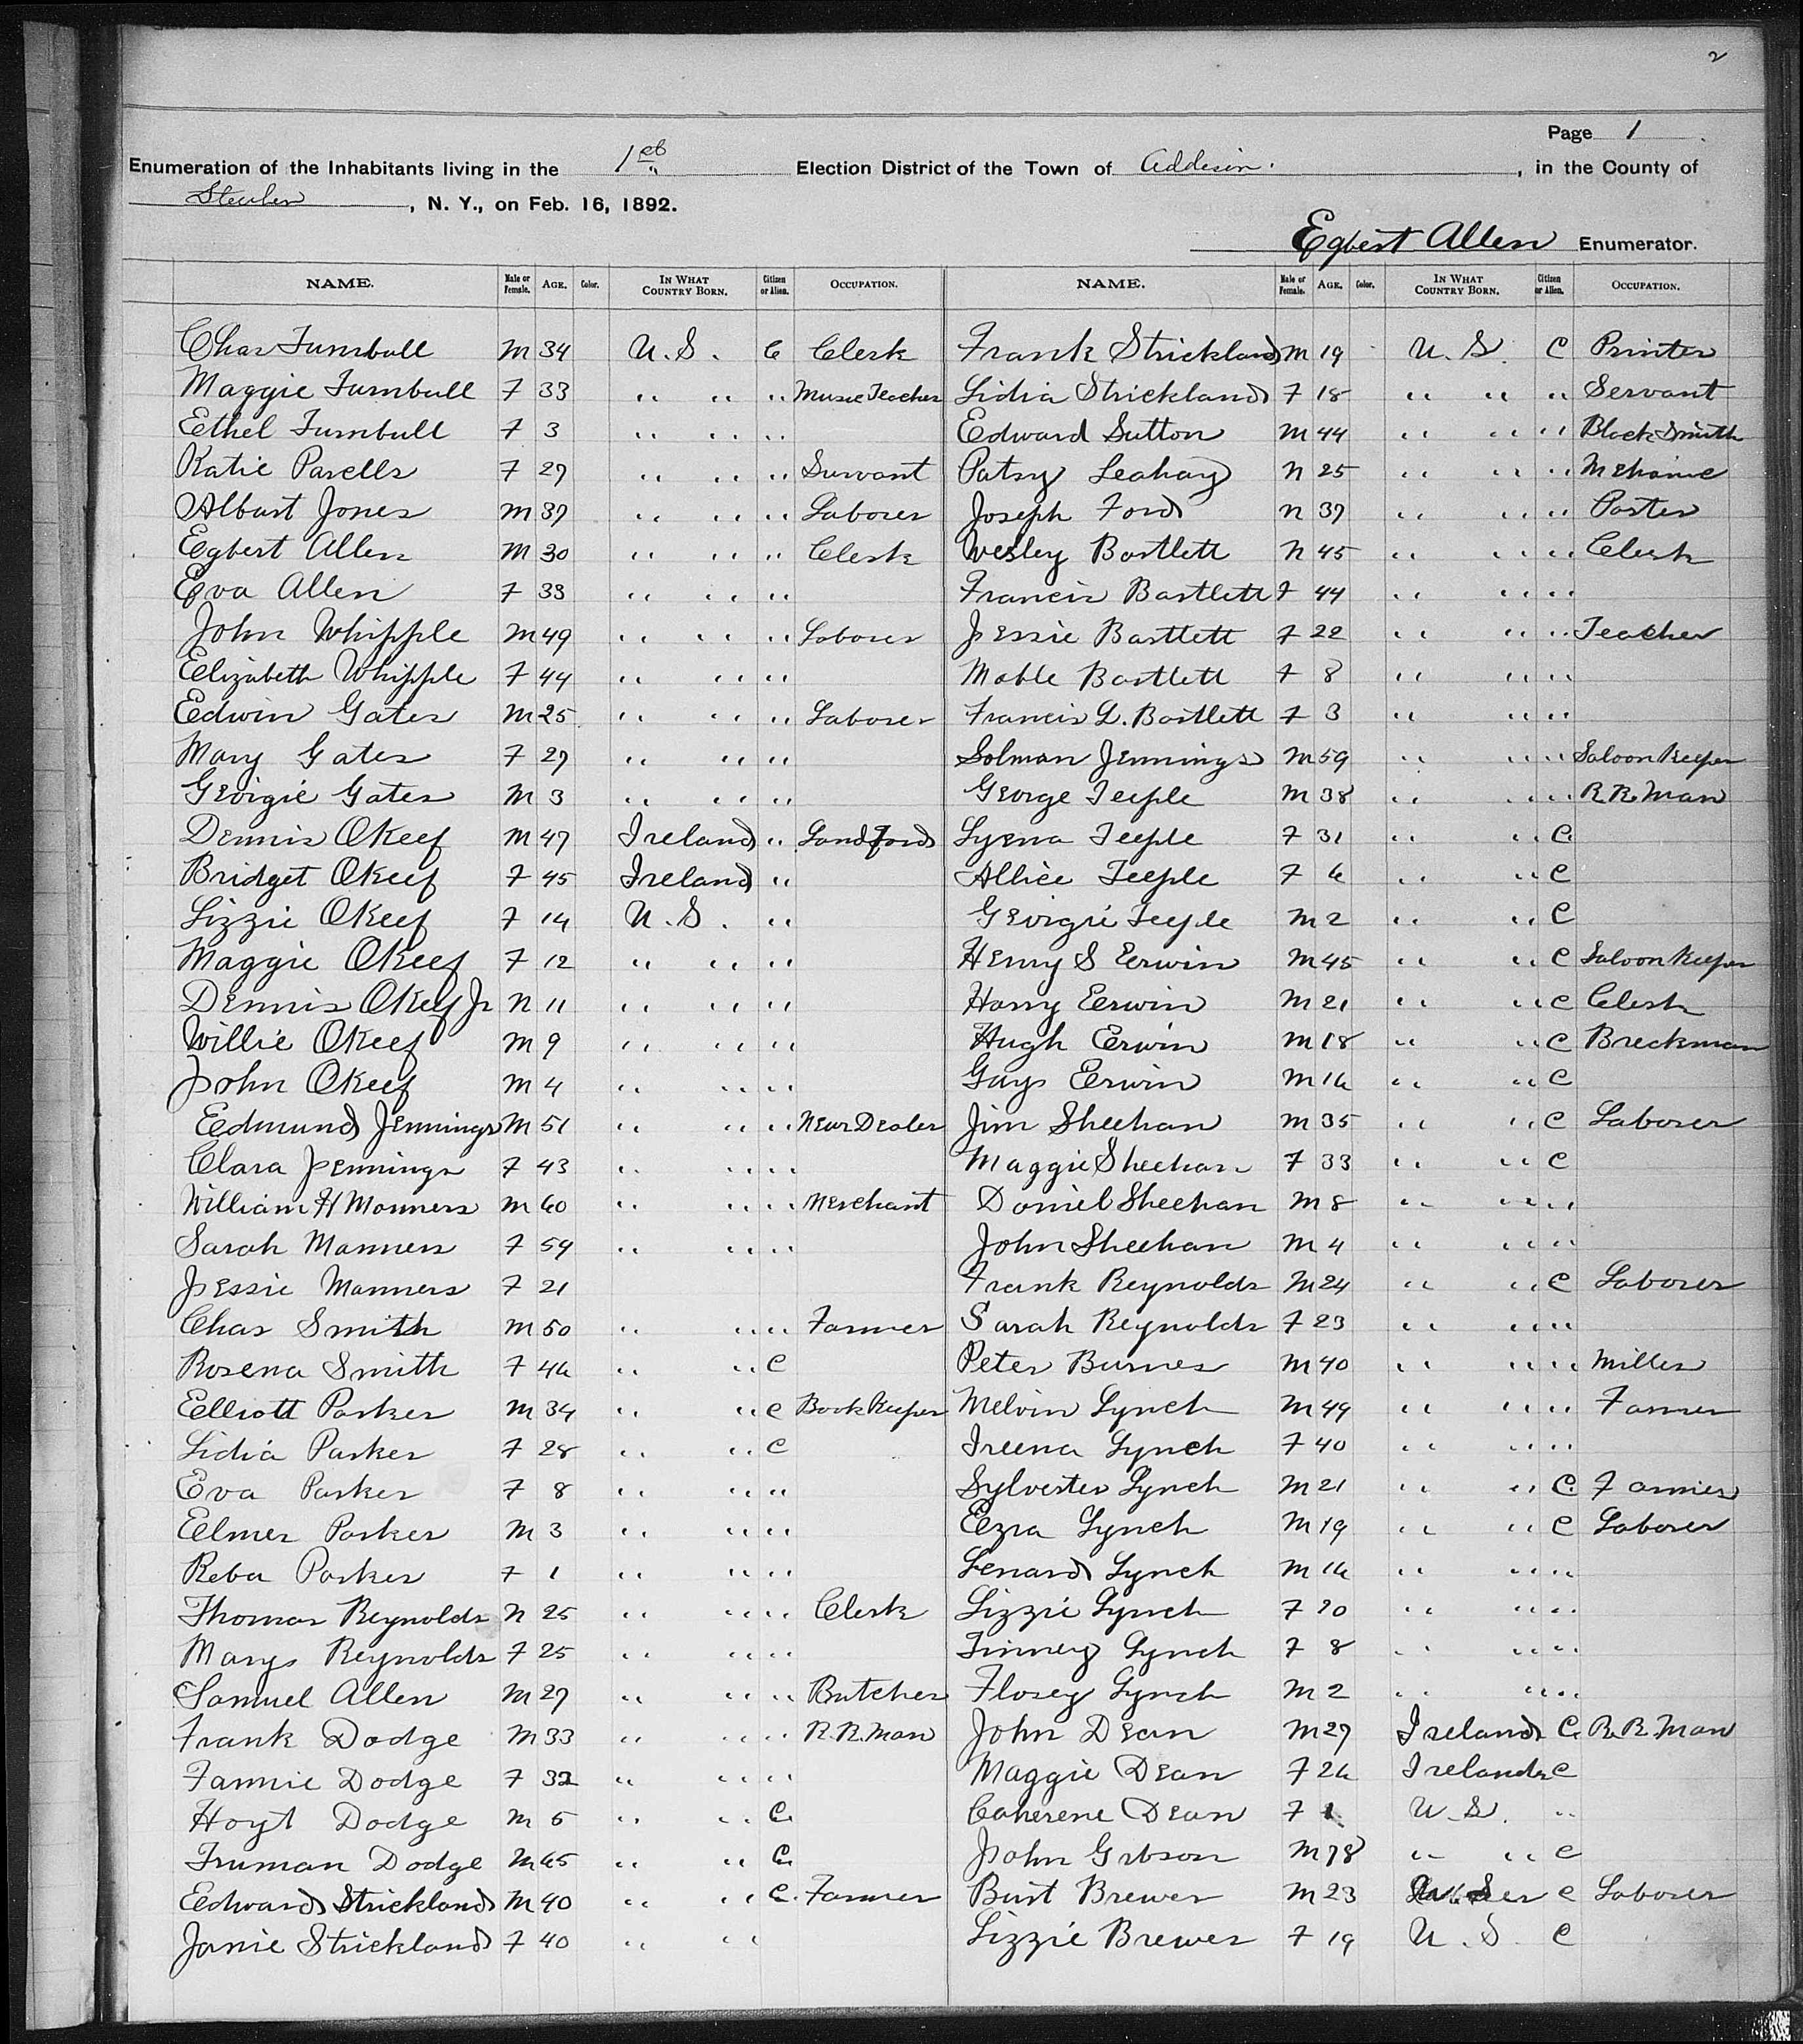 2
Page 1
Enumeration of the Inhabitants living in the 1st Election District of the Town of Addison, in the County of
Steuben, N. Y., on Feb. 16, 1892.
Egbert Allen Enumerator.
NAME. Male or Female. AGE. Color. IN WHAT COUNTRY BORN. Citizen or Alien. OCCUPATION. NAME. Male or Female. AGE. Color. IN WHAT COUNTRY BORN. Citizen or Alien. OCCUPATION.
Chas Turnbull M 34 U.S. C Clerk Frank Strickland M 19 U.S. C Printer
Maggie Turnbull F 33 " " " Music Teacher Lidia Strickland F 18 " " " Servant
Ethel Turnbull F 3 " " " Edward Sutton M 44 " " " Black Smith
Katie Parells F 27 " " " Survant Patsy Leahay M 25 " " " Mehanic
Albart Jones M 37 " " " Laborer Joseph Ford M 37 " " " Porter
Egbert Allen M 30 " " " Clerk Wesley Bartlett M 45 " " " Clerk
Eva Allen F 33 " " " Francis Bartlett F 44 " " "
John Whipple M 49 " " " Laborer Jessie Bartlett F 22 " " " Teacher
Elizabeth Whipple F 44 " " " Mable Bartlett F 8 " " "
Edwin Gates M 25 " " " Laborer Francis L. Bartlett F 3 " " "
Mary Gates F 27 " " " Solman Jennings M 59 " " " Saloon Keeper
Georgie Gates M 3 " " " George Teeple M 38 " " " R.R. Man
Dennis OKeef M 47 Ireland " Land Lord Lyena Teeple F 31 " " C
Bridget OKeef F 45 Ireland " Allice Teeple F 6 " " C
Lizzie OKeef F 14 U.S. " Georgie Teeple M 2 " " C
Maggie OKeef F 12 " " " Henry S Erwin M 45 " " C Saloon Keeper
Dennis OKeef Jr M 11 " " " Harry Erwin M 21 " " C Clerk
Willie OKeef M 9 " " " Hugh Erwin M 18 " " C Breckman
John OKeef M 4 " " " Guy Erwin M 16 " " C
Edmund Jennings M 51 " " " News Dealer Jim Sheehan M 35 " " C Laborer
Clara Jennings F 43 " " " Maggie Sheehan F 33 " " C
William H Manners M 60 " " " Merchant Daniel Sheehan M 8 " " "
Sarah Manners F 59 " " " John Sheehan M 4 " " "
Jessie Manners F 21 Frank Reynolds M 24 " " C Laborer
Chas Smith M 50 " " " Farmer Sarah Reynolds F 23 " " "
Rosena Smith F 46 " " C Peter Burnes M 40 " " " Miller
Elliott Parker M 34 " " C Book Keeper Melvin Lynch M 49 " " " Farmer
Lidia Parker F 28 " " C Ireena Lynch F 40 " " "
Eva Parker F 8 " " " Sylvester Lynch M 21 " " C. Farmer
Elmer Parker M 3 " " " Ezra Lynch M 19 " " C Laborer
Reba Parker F 1 " " " Lenard Lynch M 16 " " "
Thomas Reynolds M 25 " " " Clerk Lizzie Lynch F 20 " " "
Mary Reynolds F 25 " " " Lynch F 8 " " "
Samuel Allen M 27 " " " Butcher Flosey Lynch M 2 " " "
Frank Dodge M 33 " " " R.R. Man John Dean M 27 Ireland C. R.R. Man
Fannie Dodge F 32 " " " Maggie Dean F 26 Ireland C
Hoyt Dodge M 5 " " C. Caherene Dean F 1 U.S. "
Truman Dodge M 65 " " C. John Gibson M 78 " " C
Edward Strickland M 40 " " C. Farmer Burt Brewer M 23 C Laborer
Janie Strickland F 40 " " Lizzie Brewer F 19 U.S. C